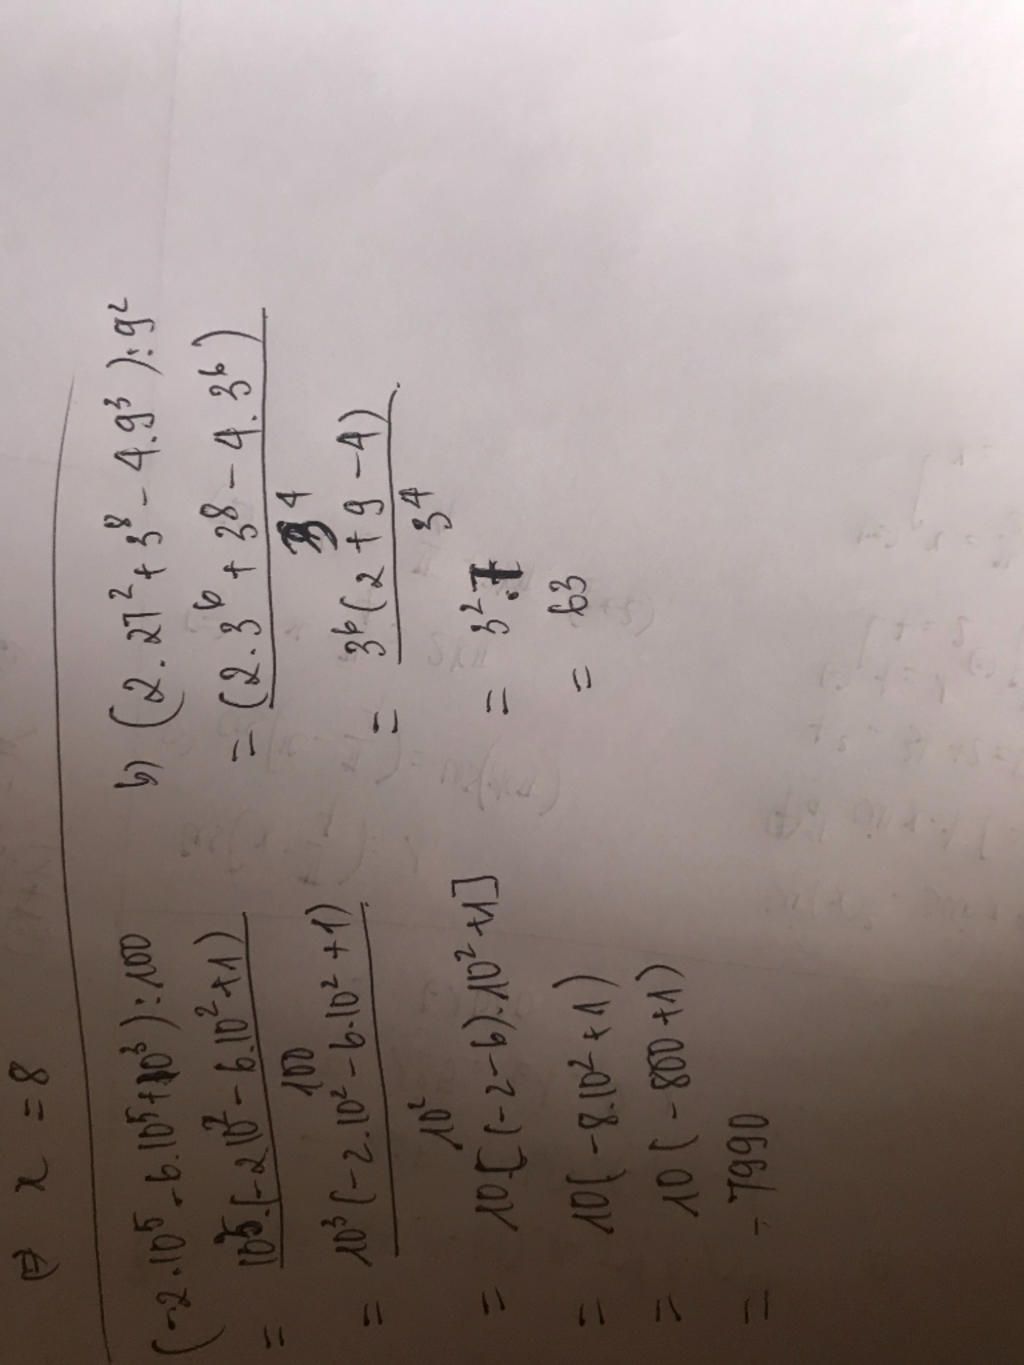 ⇒ x = 8
(-2.10⁵ - 6.10⁵ + 10³) : 100
= 10³.(-2 10² - 6.10² + 1) / 100
= 10³ (-2.10² - 6.10² + 1) / 10²
= 10.[(-2-6).10² + 1]
= 10(-8.10² + 1)
= 10(-800 + 1)
= -7990
b) (2.27² + 3⁸ - 4.9³) : 9²
= (2.3⁶ + 3⁸ - 4.3⁶) / 3⁴
= 3⁶(2 + 9 - 4) / 3⁴
= 3².7
= 63